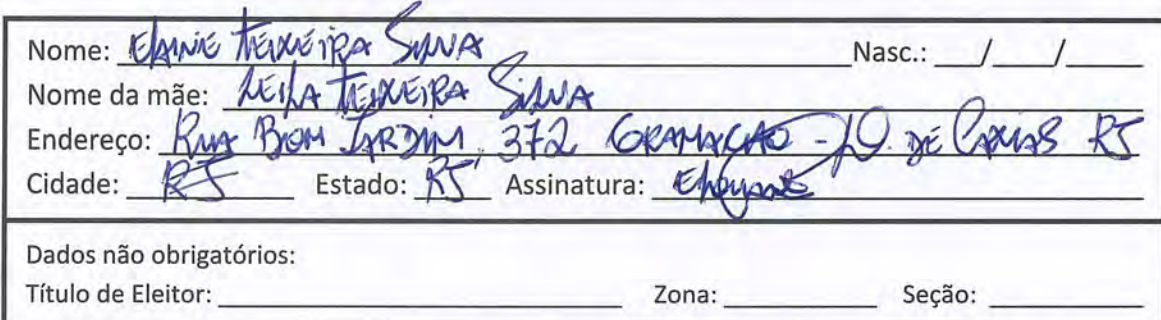 Nome: ELAINE TEIXEIRA SILVA Nasc.: __/__/__
Nome da mãe: LEILA TEIXEIRA SILVA
Endereço: RUA BOM JARDIM, 372 GRAMACHO - D. DE CAXIAS RJ
Cidade: RJ Estado: RJ Assinatura:
Dados não obrigatórios:
Título de Eleitor: Zona: Seção: